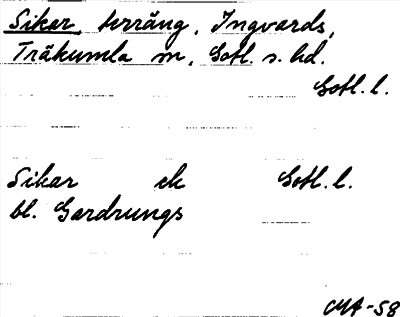 Sikar, terräng, Ingvards,
Träkumla sn, Gotl. s. hd.
Gotl. l.
Sikar ek Gotl. l.
bl. Gardrungs
MA-58